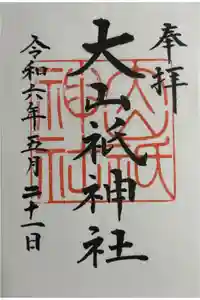 奉拝
大山祇神社
令和六年五月二十一日